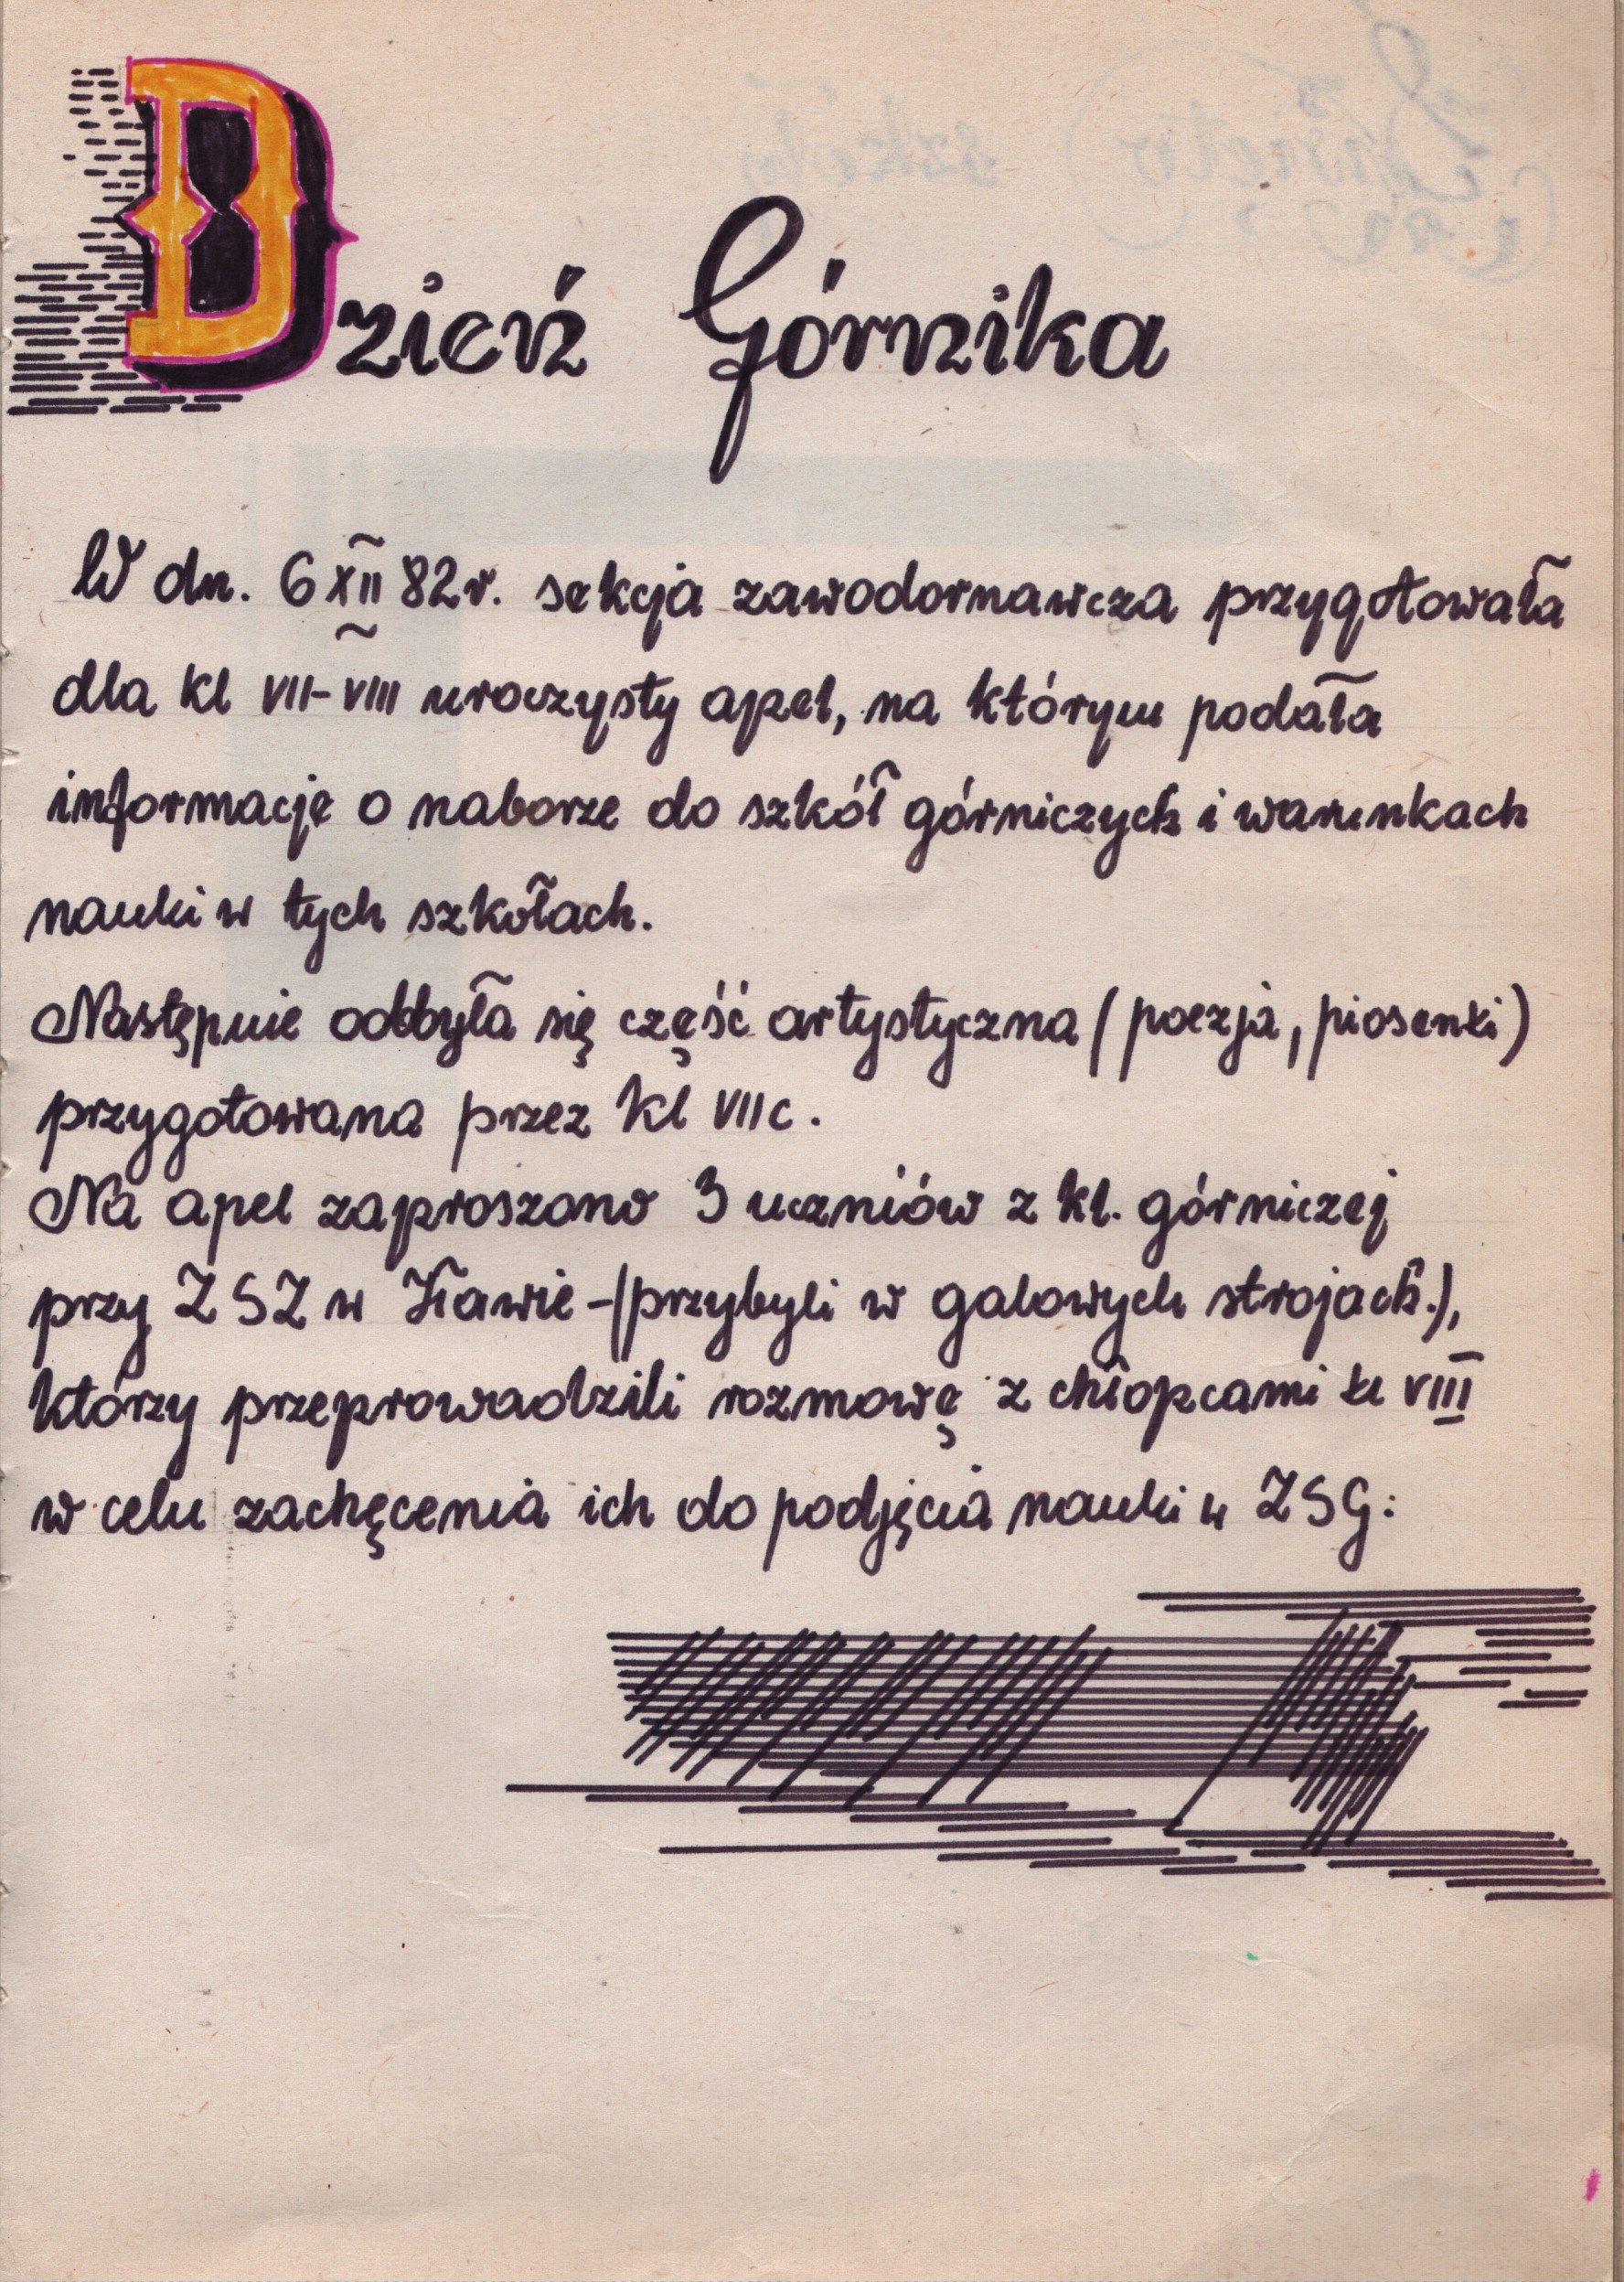 Dzień Górnika
W dn. 6 XII 82r. sekcja zawodornawcza przygotowała
dla kl VII-VIII uroczysty apel, na którym podała
informację o naborze do szkół górniczych i warunkach
nauki w tych szkołach.
Następnie odbyła się część artystyczna (poezja, piosenki)
przygotowana przez kl VIIc.
Na apel zaproszono 3 uczniów z kl. górniczej
przy ZSZ w Iławie - (przybyli w galowych strojach.),
którzy przeprowadzili rozmowę z chłopcami kl VIII
w celu zachęcenia ich do podjęcia nauki w ZSG.